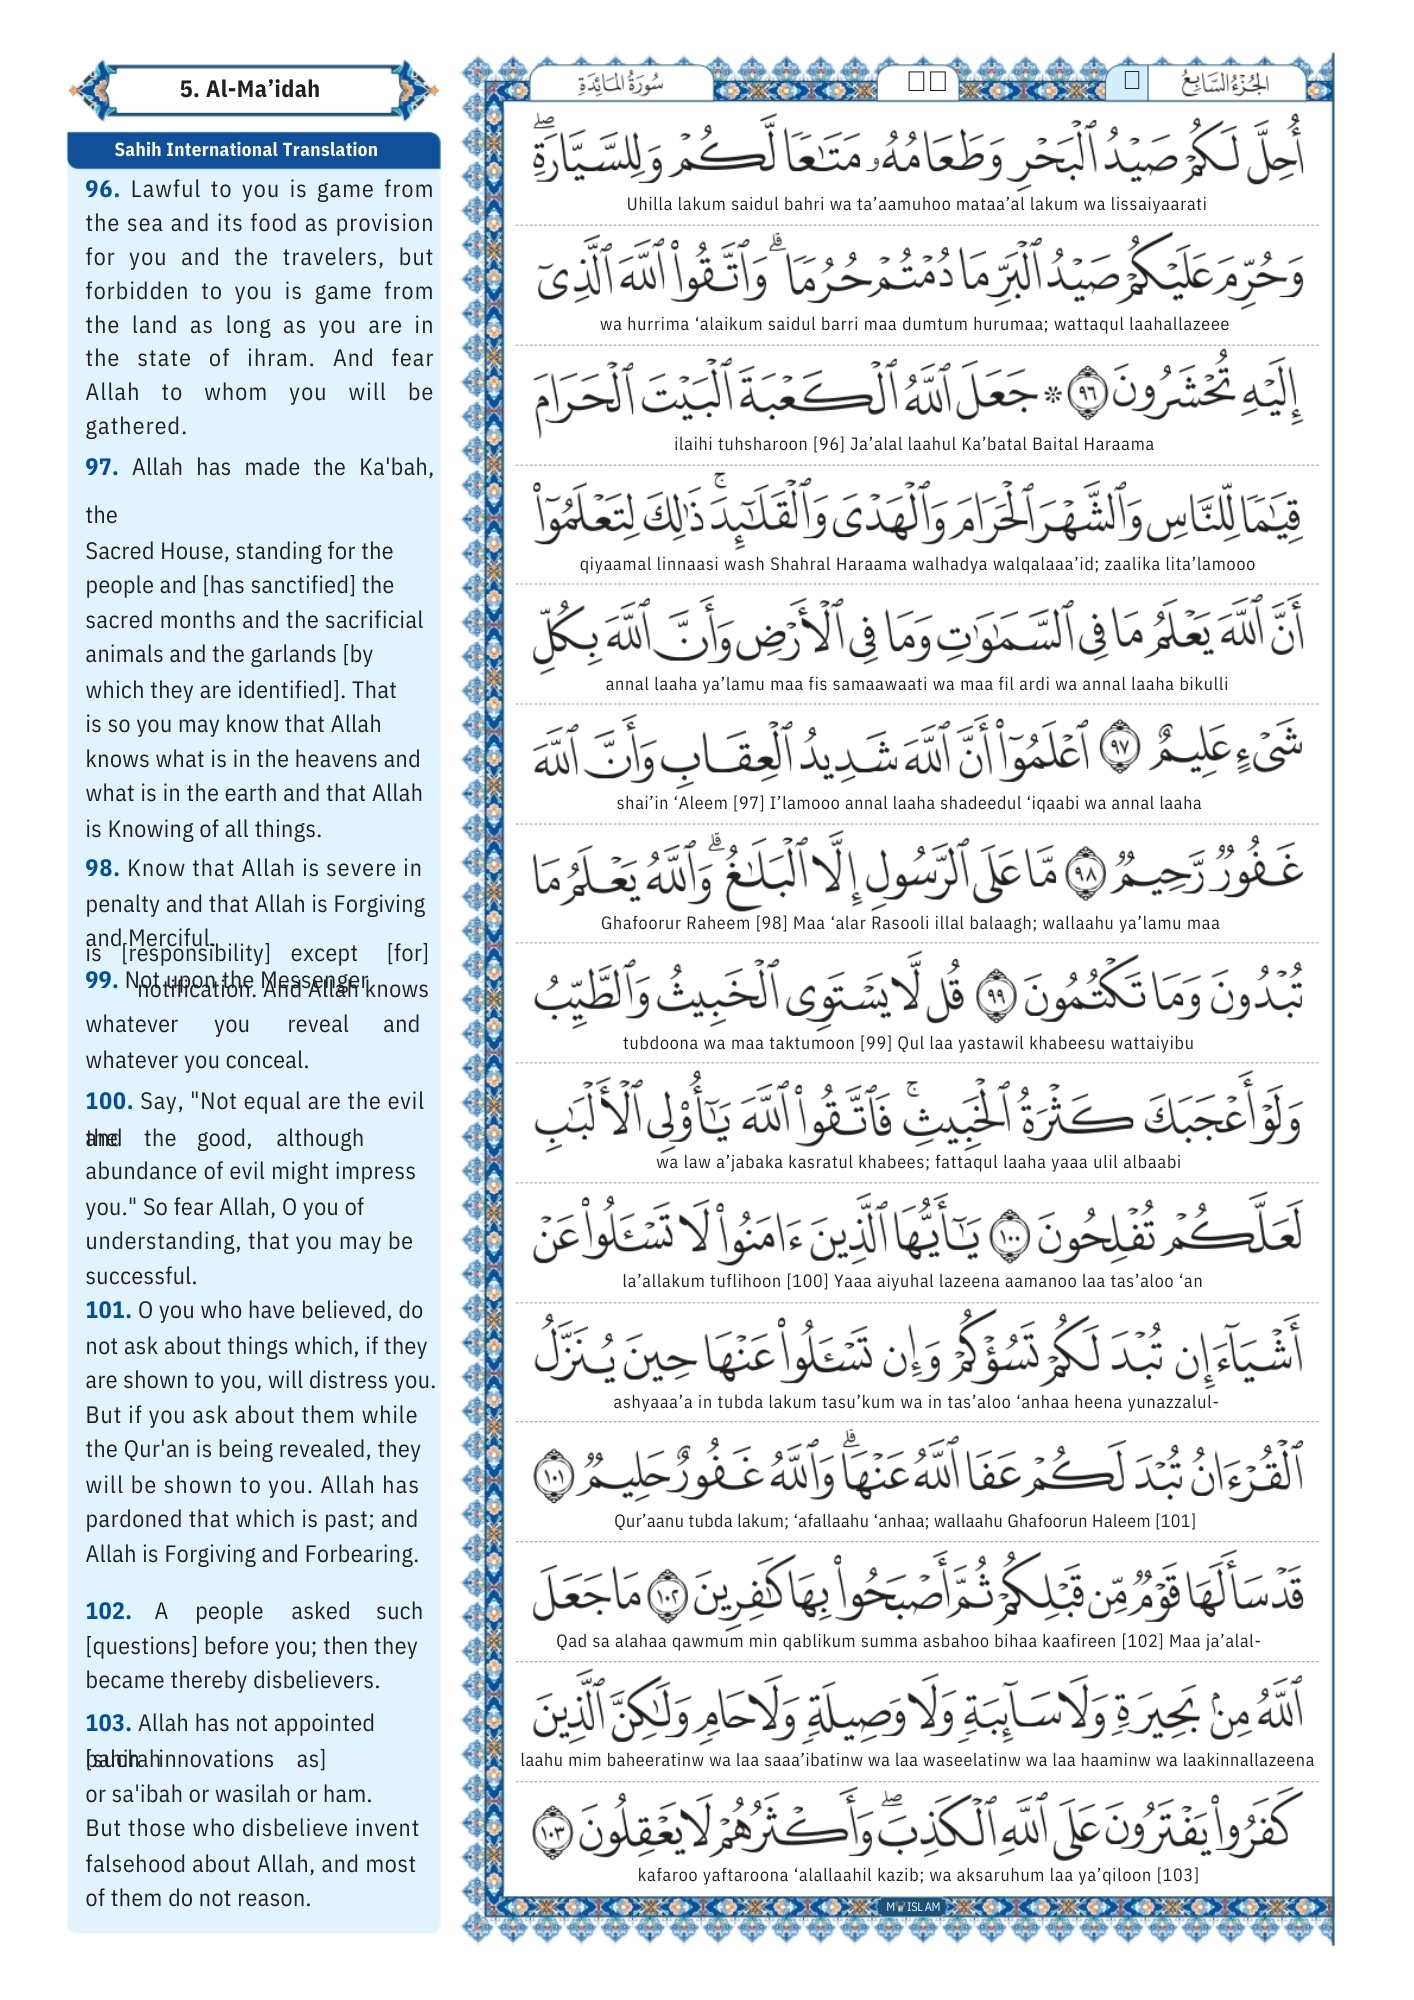 5. Al-Ma’idah
Sahih International Translation
96. Lawful to you is game from
the sea and its food as provision
for you and the travelers, but
forbidden to you is game from
the land as long as you are in
the state of ihram. And fear
Allah to whom you will be
gathered.
97. Allah has made the Ka'bah,
the
Sacred House, standing for the
people and [has sanctified] the
sacred months and the sacrificial
animals and the garlands [by
which they are identified]. That
is so you may know that Allah
knows what is in the heavens and
what is in the earth and that Allah
is Knowing of all things.
98. Know that Allah is severe in
penalty and that Allah is Forgiving
and Merciful.
99. Not upon the Messenger
is [responsibility] except [for]
notification. And Allah knows
whatever you reveal and
whatever you conceal.
100. Say, "Not equal are the evil
and the good, although
the
abundance of evil might impress
you." So fear Allah, O you of
understanding, that you may be
successful.
101. O you who have believed, do
not ask about things which, if they
are shown to you, will distress you.
But if you ask about them while
the Qur'an is being revealed, they
will be shown to you. Allah has
pardoned that which is past; and
Allah is Forgiving and Forbearing.
102. A people asked such
[questions] before you; then they
became thereby disbelievers.
103. Allah has not appointed
[such innovations as]
bahirah
or sa'ibah or wasilah or ham.
But those who disbelieve invent
falsehood about Allah, and most
of them do not reason.
الجُزْءُ السَّابِعُ
سُورَةُ المَائِدَةِ
أُحِلَّ لَكُمْ صَيْدُ ٱلْبَحْرِ وَطَعَامُهُۥ مَتَـٰعًا لَّكُمْ وَلِلسَّيَّارَةِ ۖ
Uhilla lakum saidul bahri wa ta’aamuhoo mataa’al lakum wa lissaiyaarati
وَحُرِّمَ عَلَيْكُمْ صَيْدُ ٱلْبَرِّ مَا دُمْتُمْ حُرُمًا ۗ وَٱتَّقُوا۟ ٱللَّهَ ٱلَّذِىٓ
wa hurrima ‘alaikum saidul barri maa dumtum hurumaa; wattaqul laahallazeee
إِلَيْهِ تُحْشَرُونَ ٩٦ ۞ جَعَلَ ٱللَّهُ ٱلْكَعْبَةَ ٱلْبَيْتَ ٱلْحَرَامَ
ilaihi tuhsharoon [96] Ja’alal laahul Ka’batal Baital Haraama
قِيَـٰمًا لِّلنَّاسِ وَٱلشَّهْرَ ٱلْحَرَامَ وَٱلْهَدْىَ وَٱلْقَلَـٰٓئِدَ ۚ ذَٰلِكَ لِتَعْلَمُوٓا۟
qiyaamal linnaasi wash Shahral Haraama walhadya walqalaaa’id; zaalika lita’lamooo
أَنَّ ٱللَّهَ يَعْلَمُ مَا فِى ٱلسَّمَـٰوَٰتِ وَمَا فِى ٱلْأَرْضِ وَأَنَّ ٱللَّهَ بِكُلِّ
annal laaha ya’lamu maa fis samaawaati wa maa fil ardi wa annal laaha bikulli
شَىْءٍ عَلِيمٌ ٩٧ ٱعْلَمُوٓا۟ أَنَّ ٱللَّهَ شَدِيدُ ٱلْعِقَابِ وَأَنَّ ٱللَّهَ
shai’in ‘Aleem [97] I’lamooo annal laaha shadeedul ‘iqaabi wa annal laaha
غَفُورٌ رَّحِيمٌ ٩٨ مَّا عَلَى ٱلرَّسُولِ إِلَّا ٱلْبَلَـٰغُ ۗ وَٱللَّهُ يَعْلَمُ مَا
Ghafoorur Raheem [98] Maa ‘alar Rasooli illal balaagh; wallaahu ya’lamu maa
تُبْدُونَ وَمَا تَكْتُمُونَ ٩٩ قُل لَّا يَسْتَوِى ٱلْخَبِيثُ وَٱلطَّيِّبُ
tubdoona wa maa taktumoon [99] Qul laa yastawil khabeesu wattaiyibu
وَلَوْ أَعْجَبَكَ كَثْرَةُ ٱلْخَبِيثِ ۚ فَٱتَّقُوا۟ ٱللَّهَ يَـٰٓأُو۟لِى ٱلْأَلْبَـٰبِ
wa law a’jabaka kasratul khabees; fattaqul laaha yaaa ulil albaabi
لَعَلَّكُمْ تُفْلِحُونَ ١٠٠ يَـٰٓأَيُّهَا ٱلَّذِينَ ءَامَنُوا۟ لَا تَسْـَٔلُوا۟ عَنْ
la’allakum tuflihoon [100] Yaaa aiyuhal lazeena aamanoo laa tas’aloo ‘an
أَشْيَآءَ إِن تُبْدَ لَكُمْ تَسُؤْكُمْ وَإِن تَسْـَٔلُوا۟ عَنْهَا حِينَ يُنَزَّلُ
ashyaaa’a in tubda lakum tasu’kum wa in tas’aloo ‘anhaa heena yunazzalul-
ٱلْقُرْءَانُ تُبْدَ لَكُمْ عَفَا ٱللَّهُ عَنْهَا ۗ وَٱللَّهُ غَفُورٌ حَلِيمٌ ١٠١
Qur’aanu tubda lakum; ‘afallaahu ‘anhaa; wallaahu Ghafoorun Haleem [101]
قَدْ سَأَلَهَا قَوْمٌ مِّن قَبْلِكُمْ ثُمَّ أَصْبَحُوا۟ بِهَا كَـٰفِرِينَ ١٠٢ مَا جَعَلَ
Qad sa alahaa qawmum min qablikum summa asbahoo bihaa kaafireen [102] Maa ja’alal-
ٱللَّهُ مِنۢ بَحِيرَةٍ وَلَا سَآئِبَةٍ وَلَا وَصِيلَةٍ وَلَا حَامٍ وَلَـٰكِنَّ ٱلَّذِينَ
laahu mim baheeratinw wa laa saaa’ibatinw wa laa waseelatinw wa laa haaminw wa laakinnallazeena
كَفَرُوا۟ يَفْتَرُونَ عَلَى ٱللَّهِ ٱلْكَذِبَ ۖ وَأَكْثَرُهُمْ لَا يَعْقِلُونَ ١٠٣
kafaroo yaftaroona ‘alallaahil kazib; wa aksaruhum laa ya’qiloon [103]
MY ISLAM